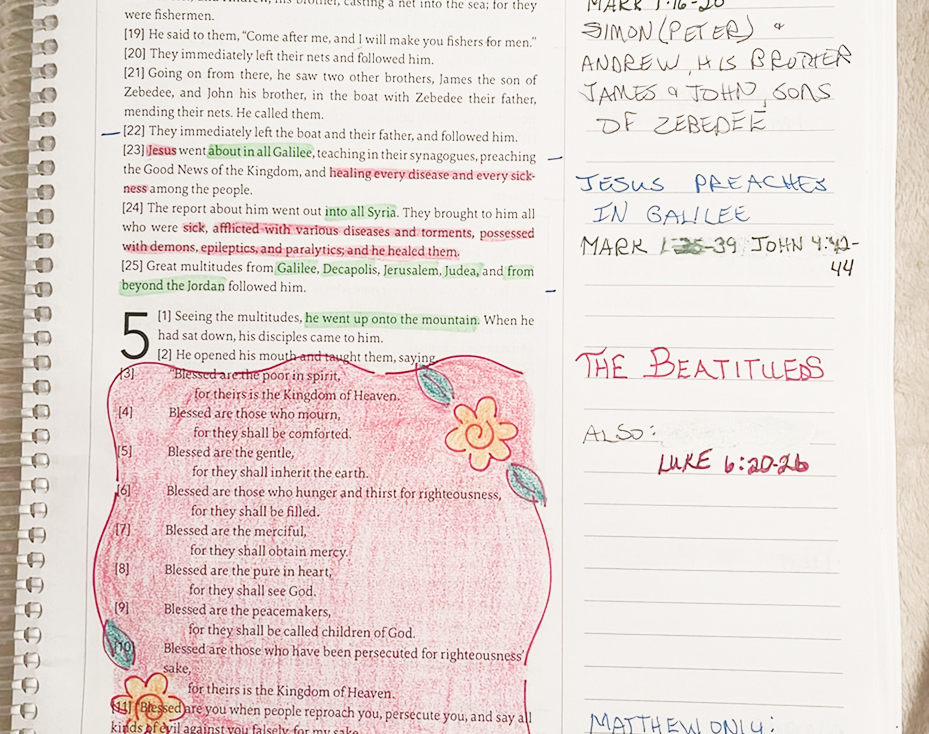 his brother, casting a net into the sea; for they
were fishermen.
[19] He said to them, “Come after me, and I will make you fishers for men.”
[20] They immediately left their nets and followed him.
[21] Going on from there, he saw two other brothers, James the son of
Zebedee, and John his brother, in the boat with Zebedee their father,
mending their nets. He called them.
[22] They immediately left the boat and their father, and followed him.
[23] Jesus went about in all Galilee, teaching in their synagogues, preaching
the Good News of the Kingdom, and healing every disease and every sick-
ness among the people.
[24] The report about him went out into all Syria. They brought to him all
who were sick, afflicted with various diseases and torments, possessed
with demons, epileptics, and paralytics; and he healed them.
[25] Great multitudes from Galilee, Decapolis, Jerusalem, Judea, and from
beyond the Jordan followed him.
5 [1] Seeing the multitudes, he went up onto the mountain. When he
had sat down, his disciples came to him.
[2] He opened his mouth and taught them, saying,
[3] “Blessed are the poor in spirit,
for theirs is the Kingdom of Heaven.
[4] Blessed are those who mourn,
for they shall be comforted.
[5] Blessed are the gentle,
for they shall inherit the earth.
[6] Blessed are those who hunger and thirst for righteousness,
for they shall be filled.
[7] Blessed are the merciful,
for they shall obtain mercy.
[8] Blessed are the pure in heart,
for they shall see God.
[9] Blessed are the peacemakers,
for they shall be called children of God.
[10] Blessed are those who have been persecuted for righteousness’
sake,
for theirs is the Kingdom of Heaven.
[11] Blessed are you when people reproach you, persecute you, and say all
kinds of evil against you falsely, for my sake.
MARK 1:16-20
SIMON (PETER) &
ANDREW, HIS BROTHER
JAMES & JOHN, SONS
OF ZEBEDEE
JESUS PREACHES
IN GALILEE
MARK 1:35-39 JOHN 4:42-
44
THE BEATITUEDS
ALSO:
LUKE 6:20-26
MATTHEW ONLY: